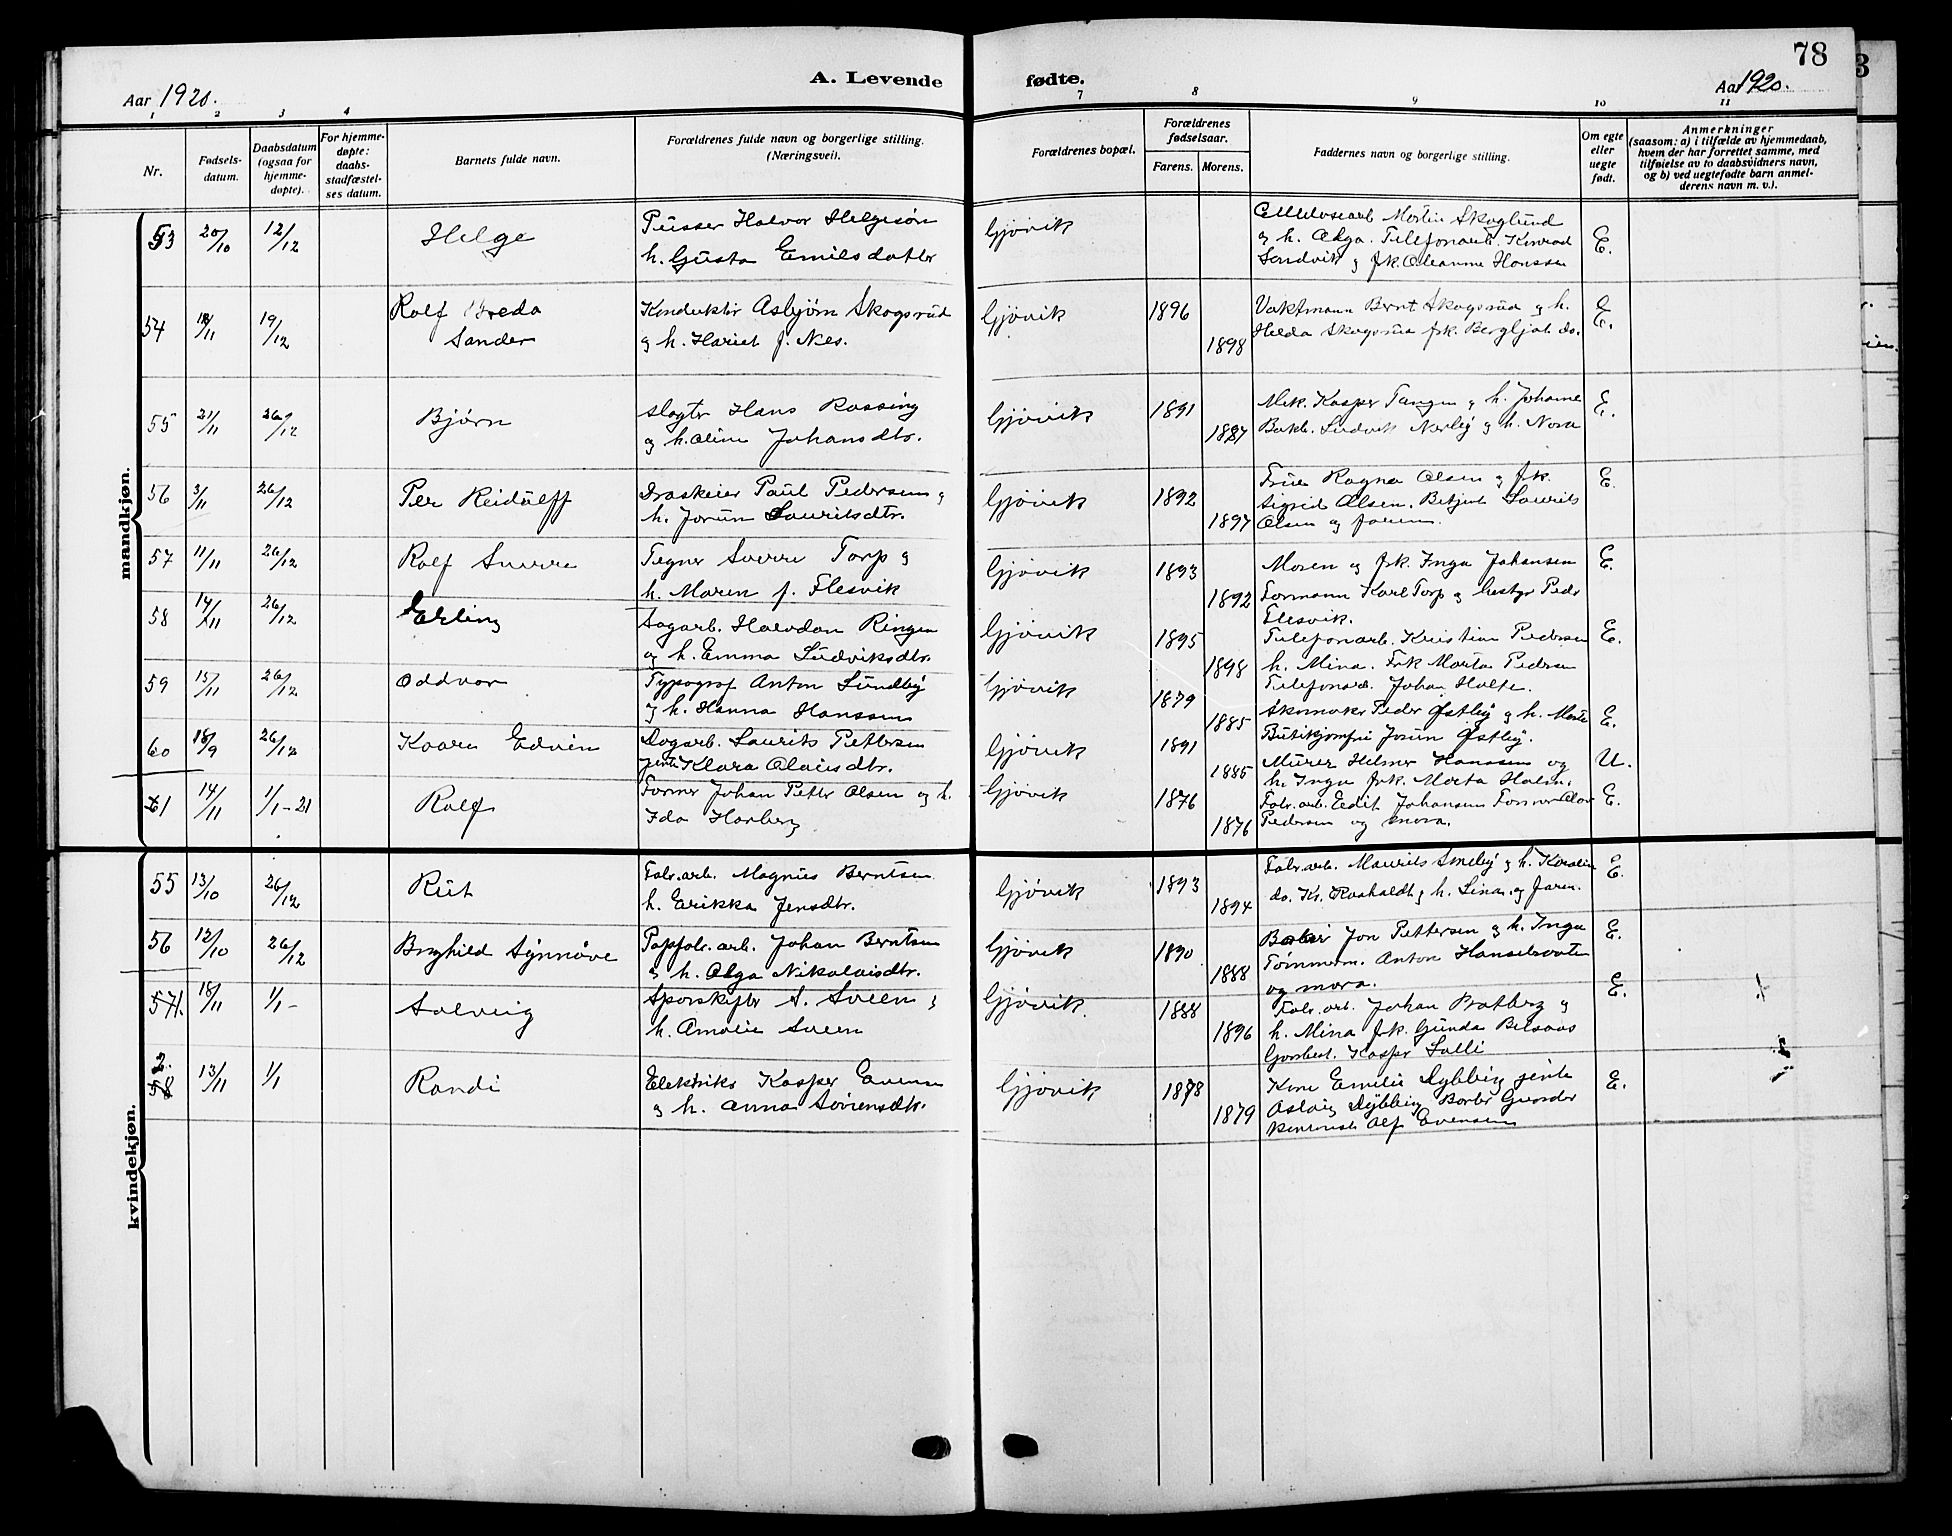 78
A. Levende fødte.
Aar 1920.
Aar 1920.
1 2 3 4 7 8 9 10 11
Nr.
Fødsels-
datum.
Daabsdatum
(ogsaa for
hjemme-
døpte).
For hjemme-
døpte:
daabs-
stadfæstel-
ses datum.
Barnets fulde navn.
Forældrenes fulde navn og borgerlige stilling.
(Næringsvei).
Forældrenes bopæl.
Forældrenes
fødselsaar.
Farens. Morens.
Faddernes navn og borgerlige stilling.
Om egte
eller
uegte
født.
Anmerkninger
(saasom: a) i tilfælde av hjemmedaab,
hvem der har forrettet samme, med
tilføielse av to daabsvidners navn,
og b) ved uegtefødte barn anmel-
derens navn m. v.).
mandkjøn.
53 20/10 12/12 Helge
Pusser Halvor Helgesøn
h. Gusta Emilsdatter
Gjøvik
Morten Skoglund
og h. Olga. Telefonarb. Konrad
Sandvik og frk. Oleanne Hanssen
E.
54 18/11 19/12 Rolf Breda
Sander
Konduktør Asbjørn Skogsrud
og h. Hariet f. Nes.
Gjøvik 1896 1898
Vaktmann Bernt Skogsrud og h.
Helda Skogsrud frk. Bergljot do.
E.
55 21/11 26/12 Bjørn
Slagter Hans Rossing
og h. Oline Johansdtr.
Gjøvik 1891 1887
Mek. Kasper Tangen og h. Johanne
Ludvik Nerby og h. Nora
E.
56 3/11 26/12 Per Reidulff
Droskeier Paul Pedersen og
h. Jorun Lauritsdtr.
Gjøvik 1892 1897
Frue Ragna Olsen og frk.
Sigrid Olsen. Betjent Laurits
Olsen og faren.
E.
57 11/11 26/12 Rolf Sverre
Tegner Sverre Torp og
h. Maren f. Flesvik
Gjøvik 1893 1892
Moren og frk. Inga Johansen
Formann Karl Torp og bestyr Peder
Flesvik.
E.
58 14/11 26/12 Erling
Sagarb. Halvdan Ringen
og h. Emma Ludviksdtr.
Gjøvik 1895 1898
Telefonarb. Kristian Pedersen
h. Mina. Frk Marta Pedersen
Telefonarb. Johan Holte.
E.
59 15/11 26/12 Oddvar
Typograf Anton Sundby
og h. Hanna Hanssen
Gjøvik 1879 1885
Skomaker Peder Østby og h. Marte
Butikjomfru Jorun Østby.
E.
60 18/9 26/12 Kaare Edvin
Dagarb. Laurits Pettersen
pike Klara Olaisdtr.
Gjøvik 1891 1885
Murer Helmer Hanssen og
h. Inga frk. Marta Holm.
U.
61 14/11 1/1-21 Rolf
Former Johan Petter Olsen og h.
Ida Harberg
Gjøvik 1876 1876
Fabr.arb. Edit Johansen Former Olav
Pedersen og mora.
E.
kvindekjøn.
55 13/10 26/12 Rut
Fabr.arb. Magnus Berntsen
h. Erikka Jensdtr.
Gjøvik 1893 1894
Fabr.arb. Maurits Smeby og h. Karoline
do. Kr. Raaholdt og h. Lina og faren.
E.
56 12/10 26/12 Brynhild Synnøve
Papfabr.arb. Johan Berntsen
og h. Olga Nikolaisdtr.
Gjøvik 1890 1888
Jon Pettersen og h. Inga
Tømmerm. Anton Hanselsvolten
og mora.
E.
57 1. 18/11 1/1- Solveig
Sporskifter S. Sveen og
h. Amalie Sveen
Gjøvik. 1888 1896
Fabr.arb. Johan Bratberg og
h. Mina frk. Gunda Belsaas
Gaardbest. Kasper Salli
E.
2. 58 13/11 1/1 Randi
Elektriker Kasper Evensen
og h. Anna Sørensdtr.
Gjøvik 1878 1879
Kone Emilie Dybberg jente
Aslaug Dybberg Barber Gunder
Alf Evensen
E.